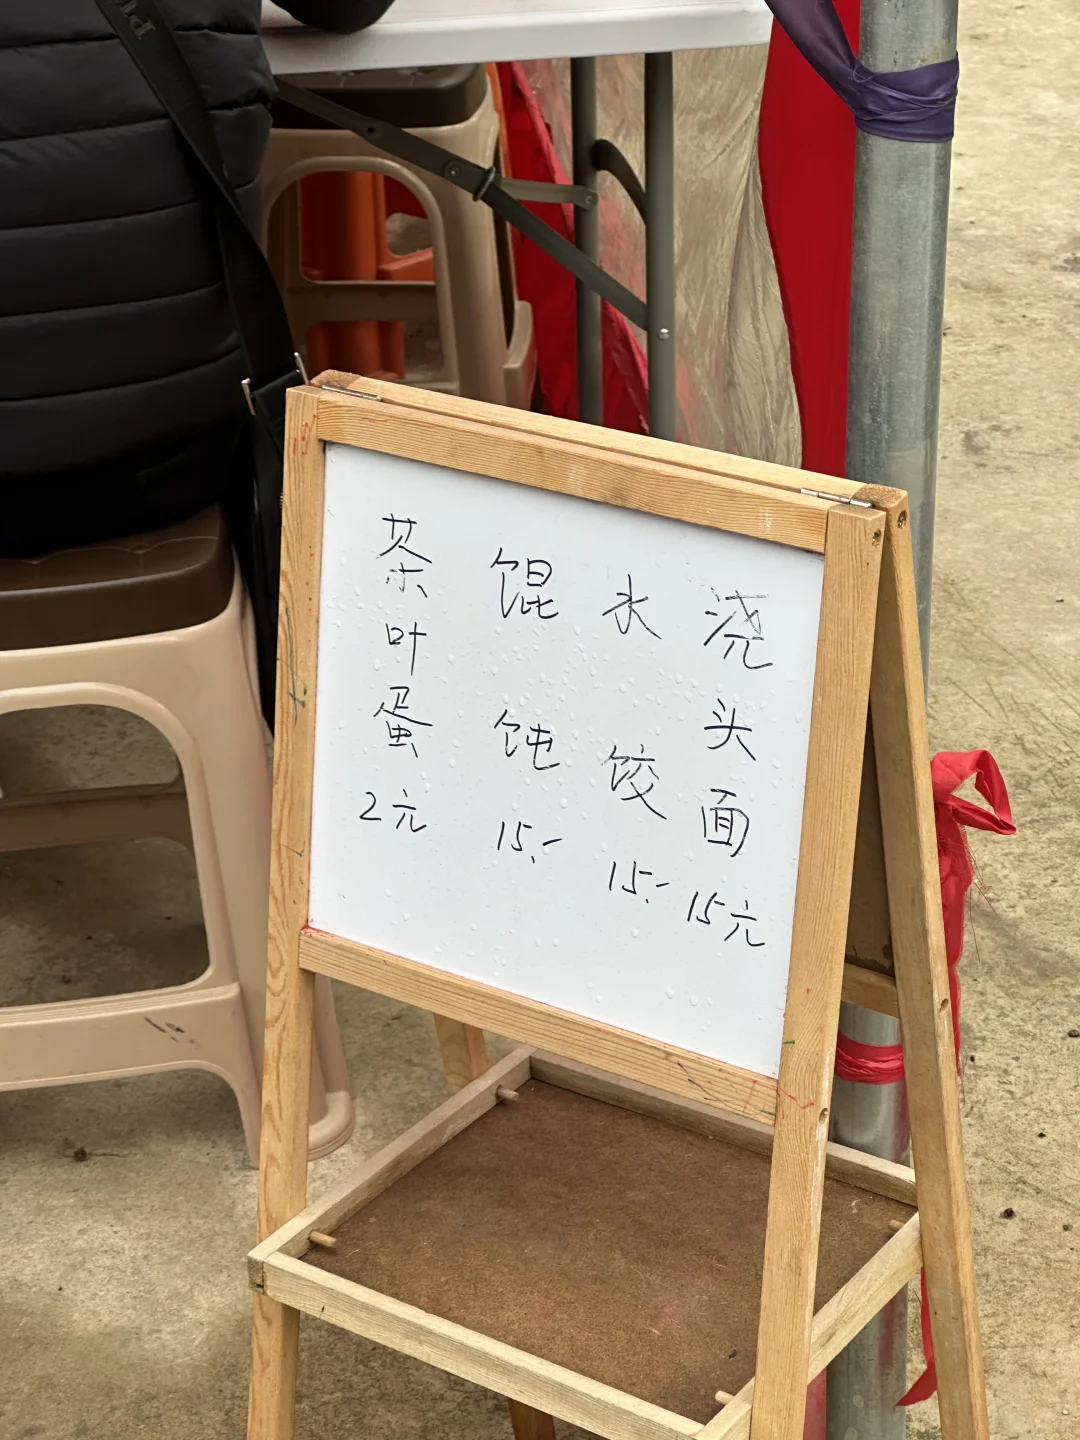 浇头面 15元
水饺 15.-
馄饨 15.-
茶叶蛋 2元